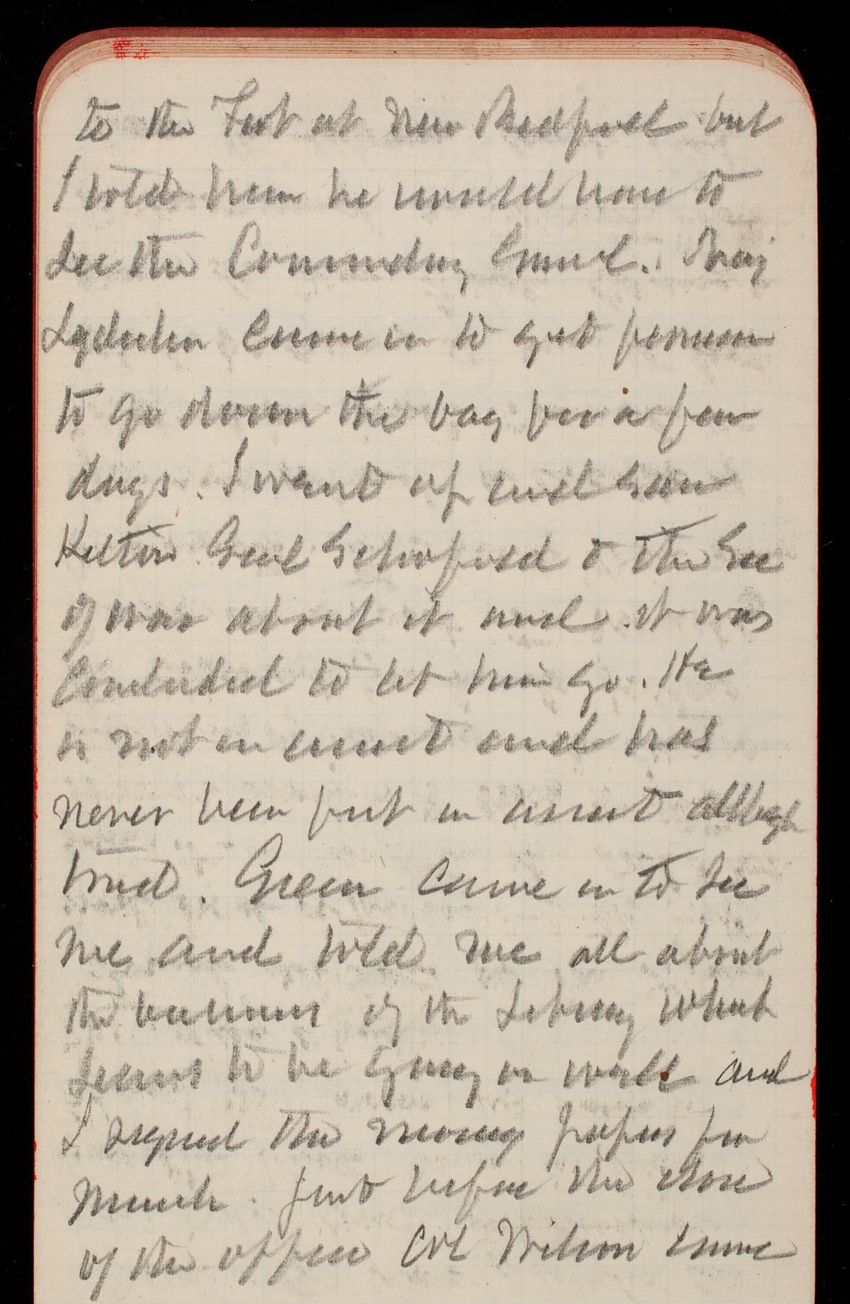 to the Fort at New Bedford but
I told him he would have to
see the Commdng Genrl. Maj
Lydecker came in to get permsn
to go down the bay for a few
days. I went up and saw
Kelton Genl Schofield & the Sec
of War about it and it was
concluded to let him go. He
is not in arrest and has
never been put in arrest although
tried. Green came in to see
me and told me all about
the business of the Library which
seems to be going on well and
I signed the money papers for
March. Just before the close
of the office Col Wilson came